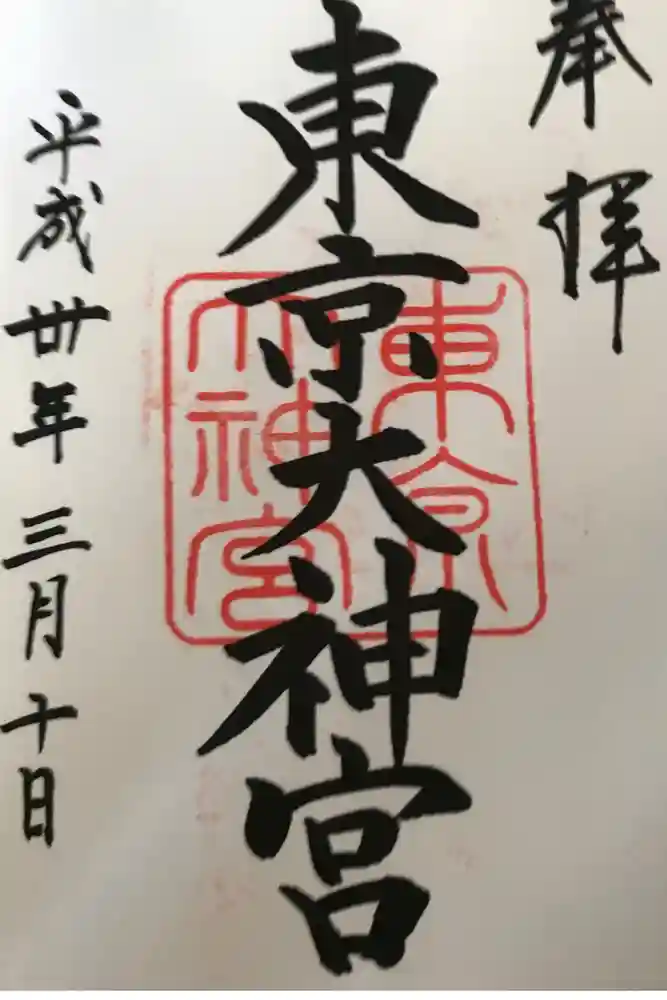 奉拝
東京大神宮
東京大神宮
平成卅年三月十日